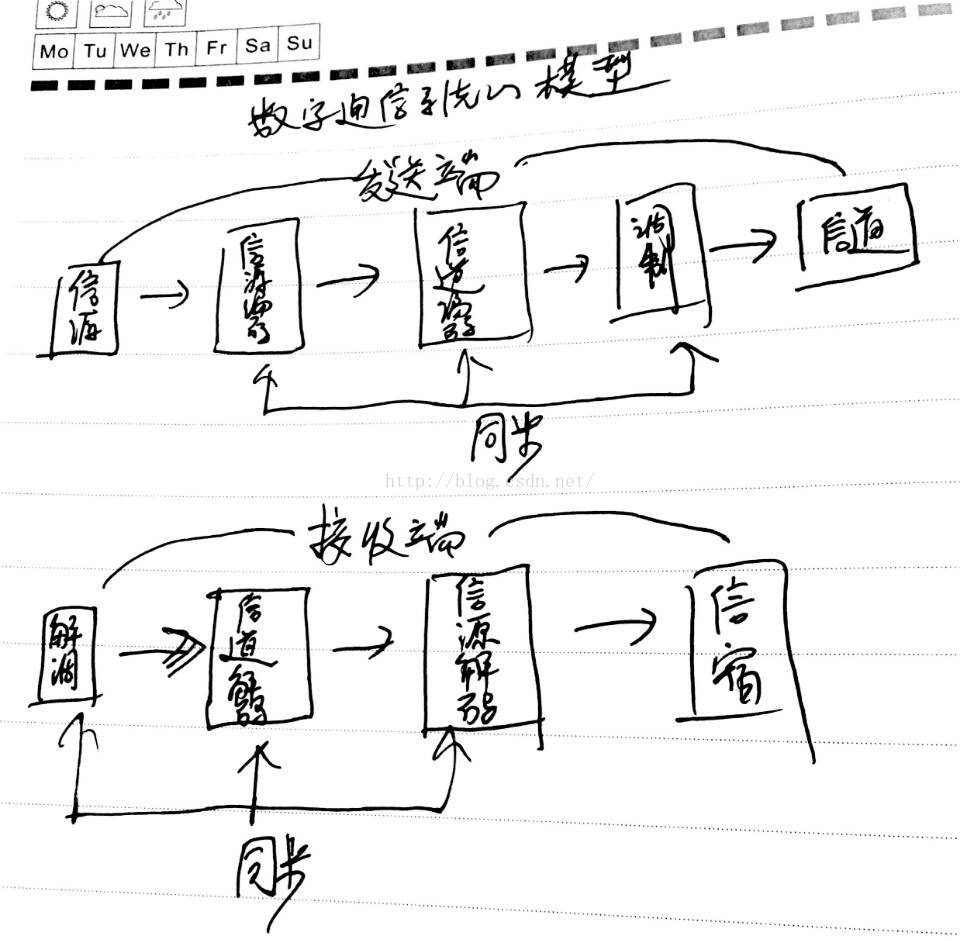 Mo Tu We Th Fr Sa Su
数字通信系统的模型
发送端
信源 信源编码 信道编码 调制 信道
同步
http://blog.csdn.net/
接收端
解调 信道解码 信源解码 信宿
同步